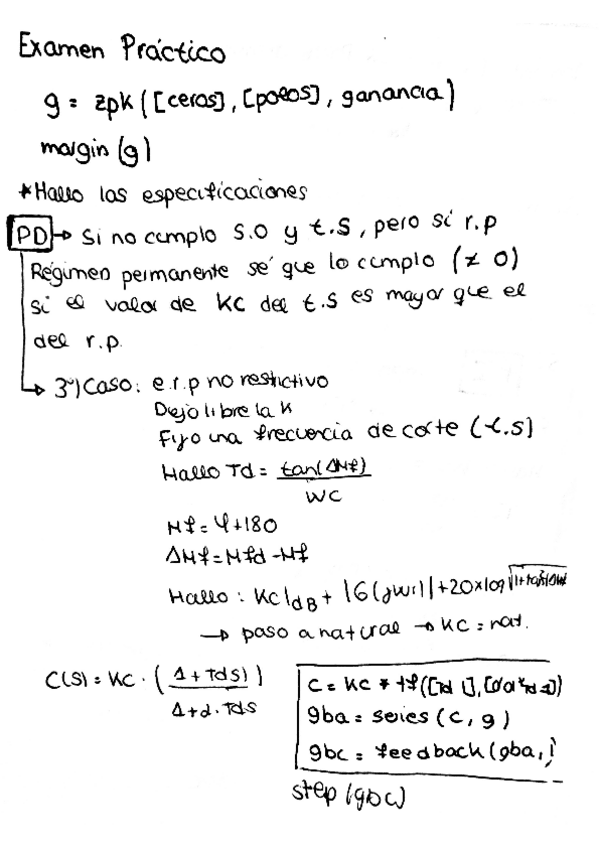 Examen Práctico
g = zpk ([ceros], [polos], ganancia)
margin (g)
*Hallo las especificaciones
PD → Si no cumplo S.O y t.S, pero sí r.p
Régimen permanente sé que lo cumplo (≠ 0)
si el valor de KC del t.s es mayor que el
del r.p.
3º) Caso: e.r.p no restrictivo
Dejo libre la K
Fijo una frecuencia de corte (t.s)
Hallo Td = tan(ΔMf)
WC
Mf = φ+180
ΔMf = Mfd - Mf
Hallo: KC|dB + |G(jwc)| + 20×log
→ paso a natural → KC = nat.
C(S) = KC · (1 + Tds)
1 + d · Tds
C = KC * tf([Td 1],
gba = series (c, g)
gbc = feedback (gba, 1
step (gbc)